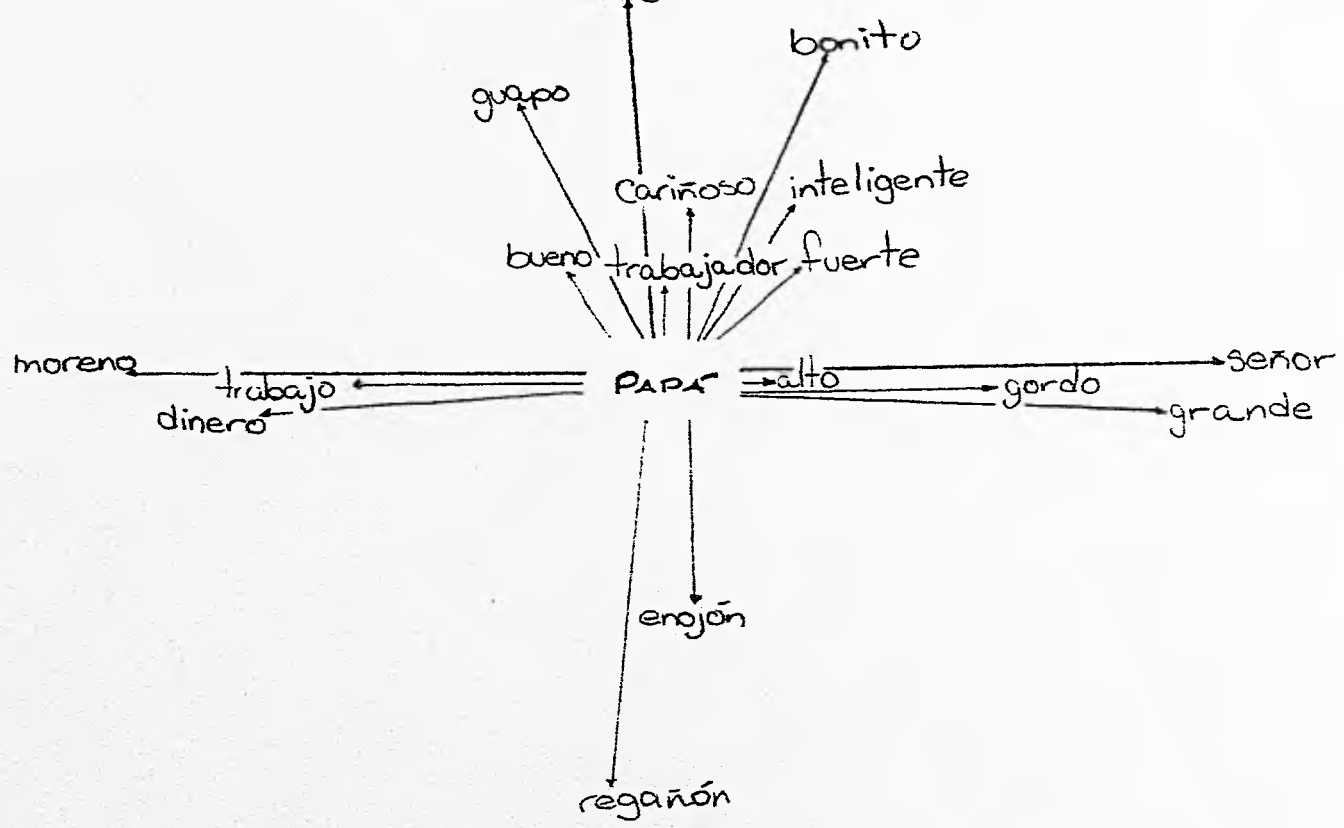 bonito
guapo
cariñoso
inteligente
bueno
trabajador
fuerte
moreno
señor
trabajo
PAPÁ
alto
gordo
dinero
grande
enojón
regañón